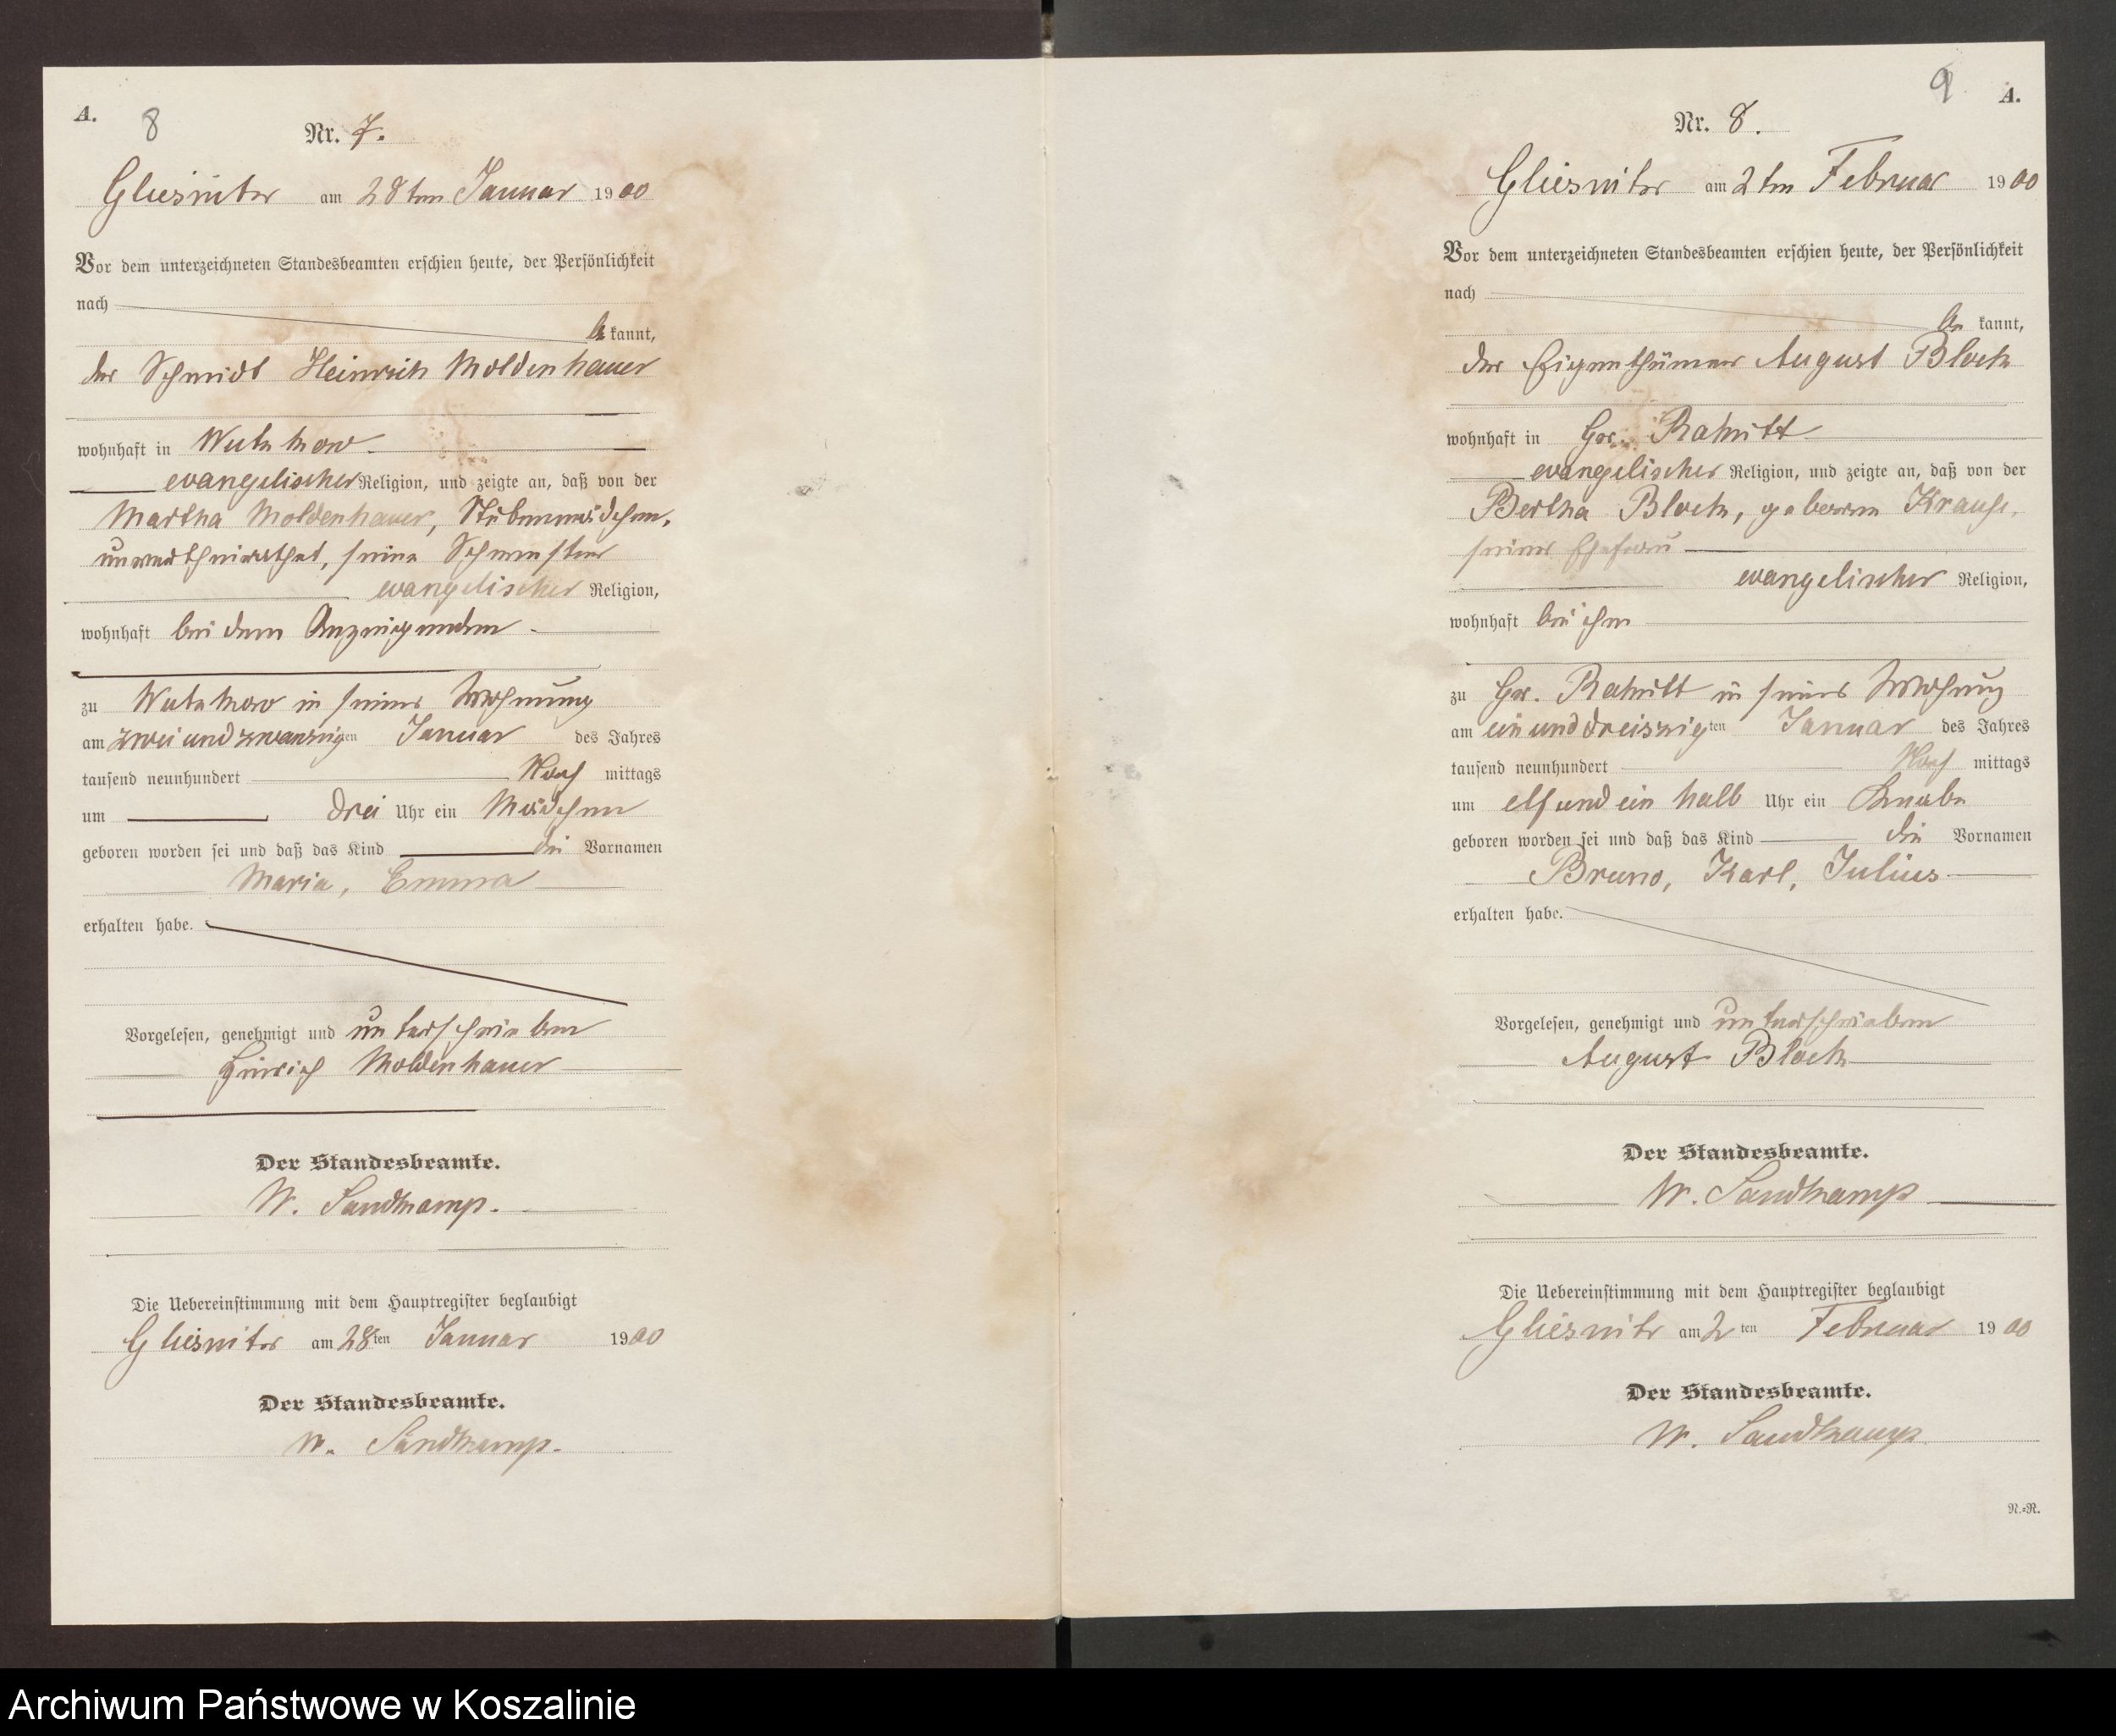 A.
8
Nr. 7.
Gliesnitz am 28ten Januar 1900
Vor dem unterzeichneten Standesbeamten erschien heute, der Persönlichkeit
nach
be kannt,
der Schmidt Heinrich Moldenhauer
wohnhaft in Wutzkow
evangelischer Religion, und zeigte an, daß von der
Martha Moldenhauer, Stubenmädchen,
unverheirathet, seine Schwester
evangelischer Religion,
wohnhaft bei dem Anzeigenden
zu Wutzkow in seiner Wohnung
am zwei und zwanzigten Januar des Jahres
tausend neunhundert Nach mittags
um drei Uhr ein Mädchen
geboren worden sei und daß das Kind die Vornamen
Maria, Emma
erhalten habe.
Vorgelesen, genehmigt und unterschrieben
Heinrich Moldenhauer
Der Standesbeamte.
W. Sandkamp.
Die Uebereinstimmung mit dem Hauptregister beglaubigt
Gliesnitz am 28ten Januar 1900
Der Standesbeamte.
W. Sandkamp.
9
A.
Nr. 8.
Gliesnitz am 2ten Februar 1900
Vor dem unterzeichneten Standesbeamten erschien heute, der Persönlichkeit
nach
be kannt,
der Eigenthümer August Block
wohnhaft in Gr. Rakitt
evangelischer Religion, und zeigte an, daß von der
Bertha Block, geborene Krause,
seiner Ehefrau
evangelischer Religion,
wohnhaft bei ihm
zu Gr. Rakitt in seiner Wohnung
am ein und dreiszigten Januar des Jahres
tausend neunhundert Nach mittags
um elf und ein halb Uhr ein Knabe
geboren worden sei und daß das Kind die Vornamen
Bruno, Karl, Julius
erhalten habe.
Vorgelesen, genehmigt und unterschrieben
August Block
Der Standesbeamte.
W. Sandkamp
Die Uebereinstimmung mit dem Hauptregister beglaubigt
Gliesnitz am 2ten Februar 1900
Der Standesbeamte.
W. Sandkamp
N.=R.
Archiwum Państwowe w Koszalinie